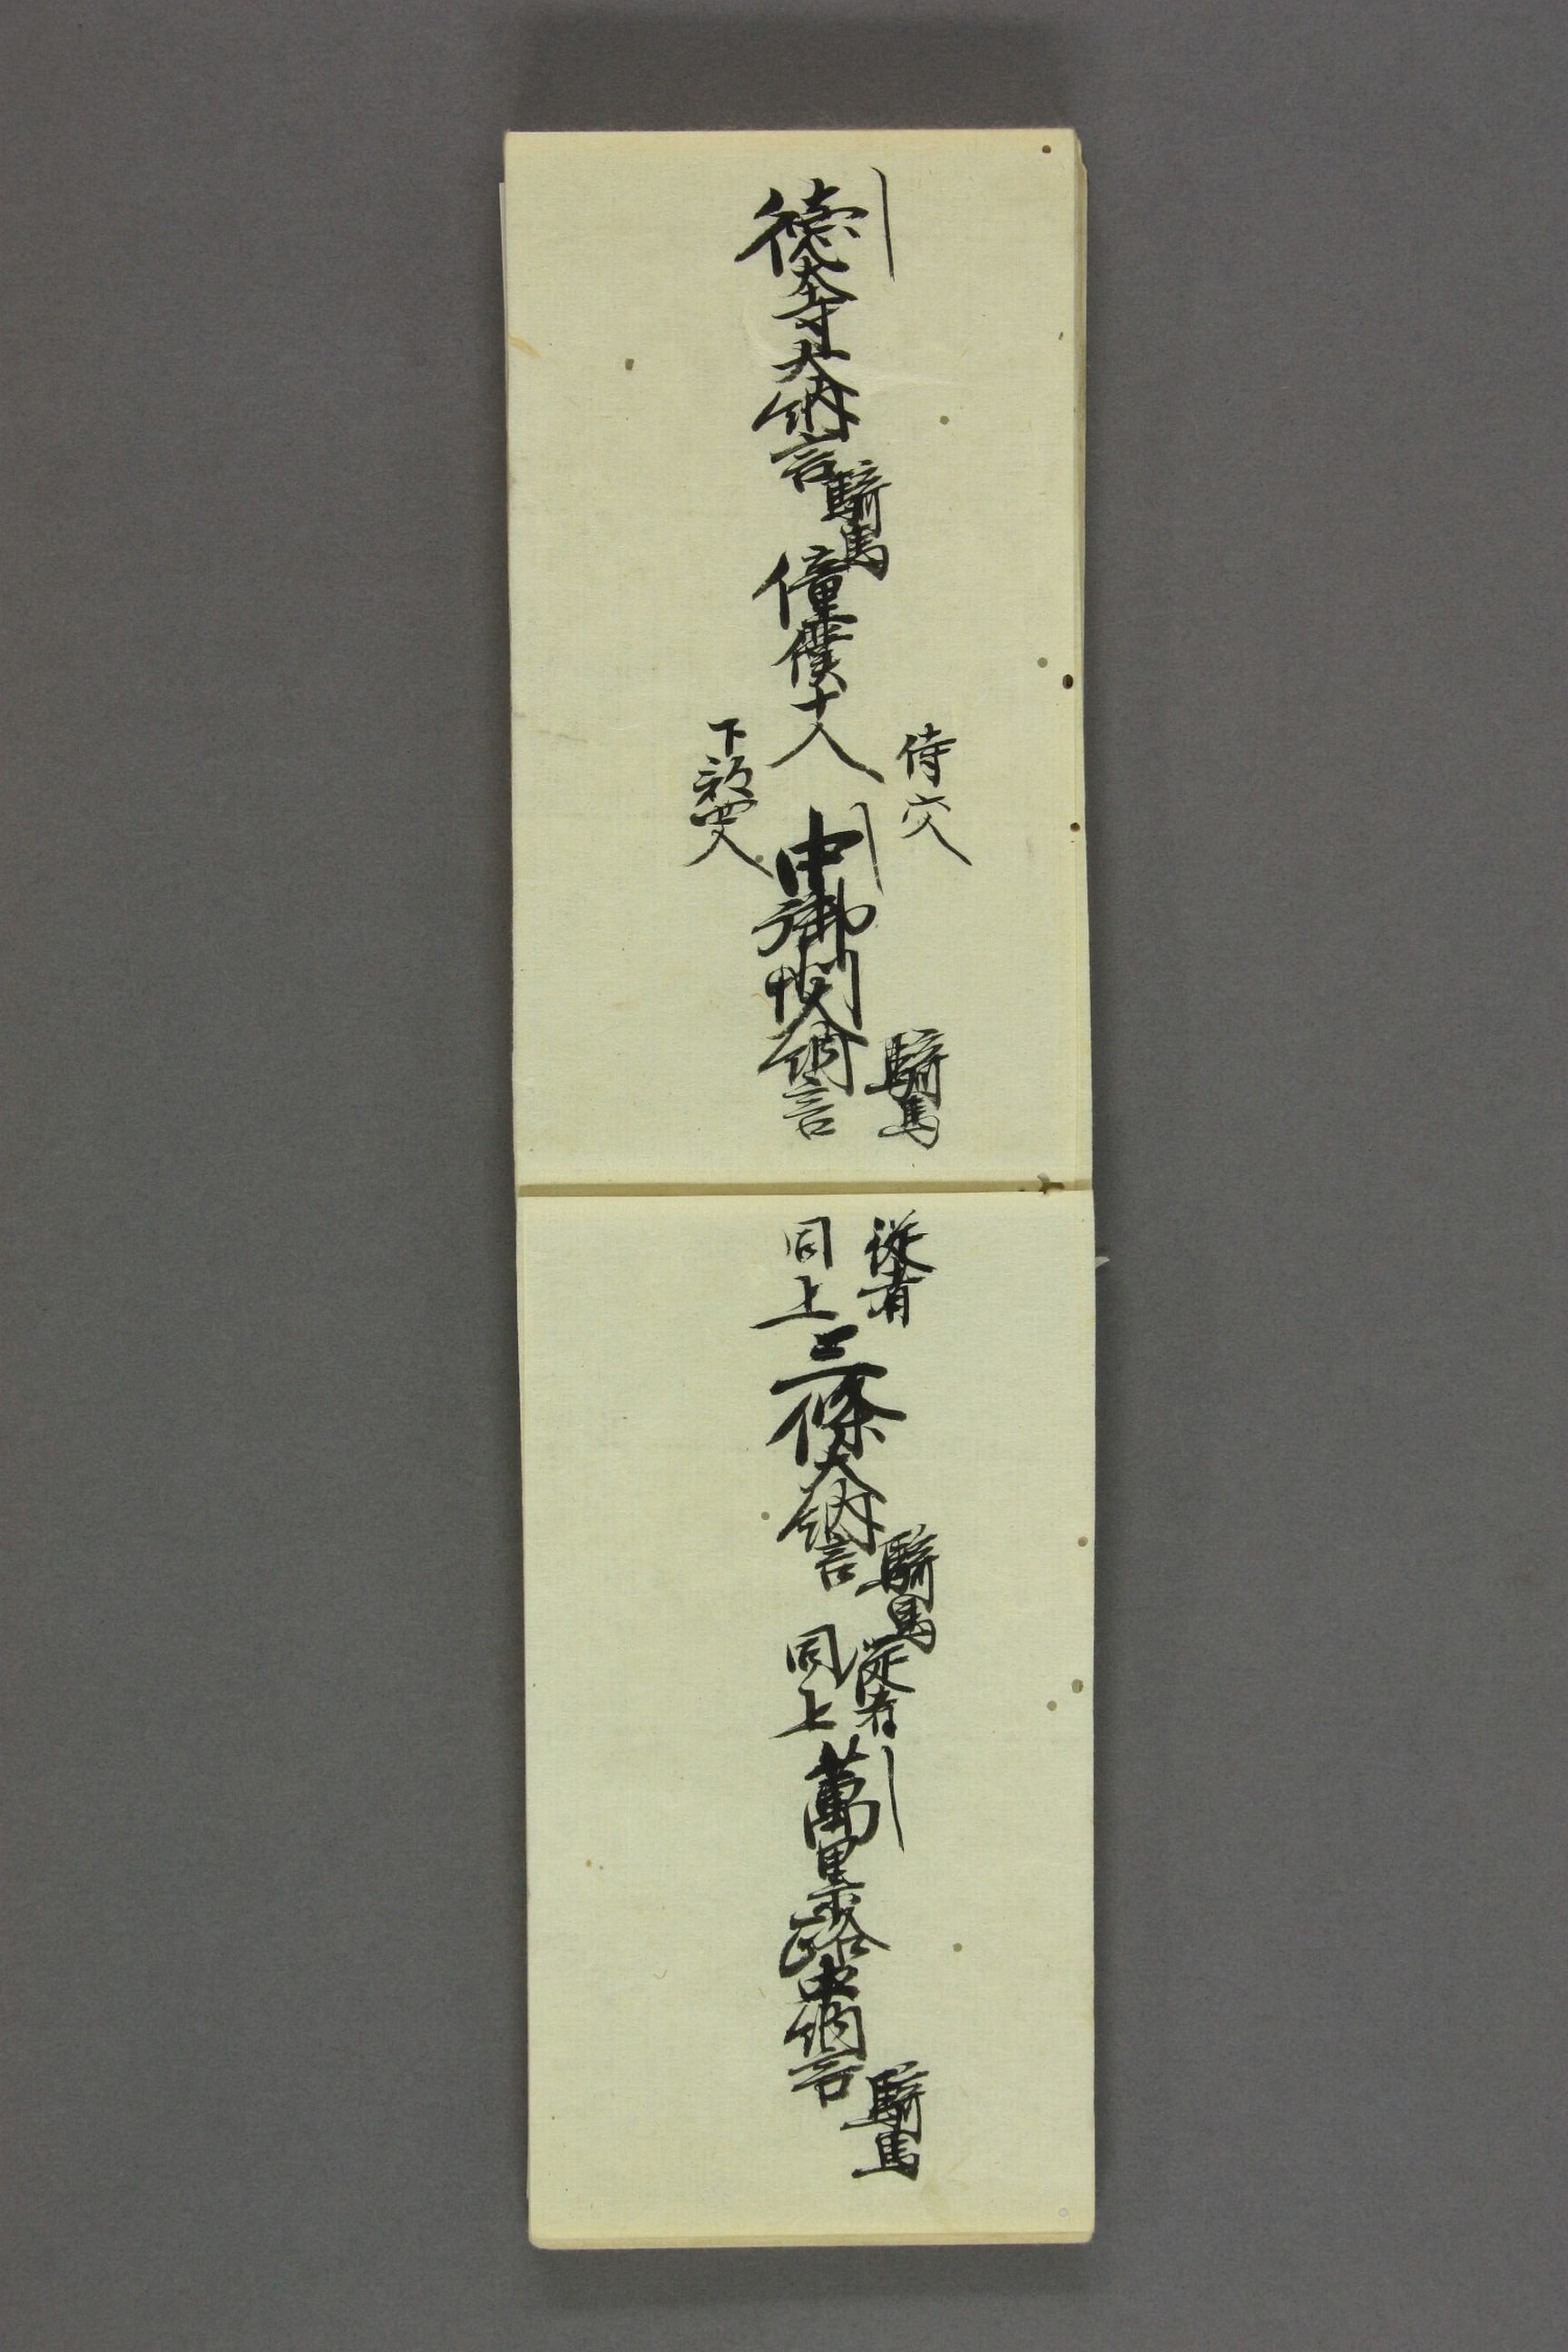 徳大寺大納言
騎馬
僮僕十人
侍六人
下部四人
中御門大納言
騎馬
從者
同上
三條大納言
騎馬
從者
同上
萬里小路中納言
騎馬